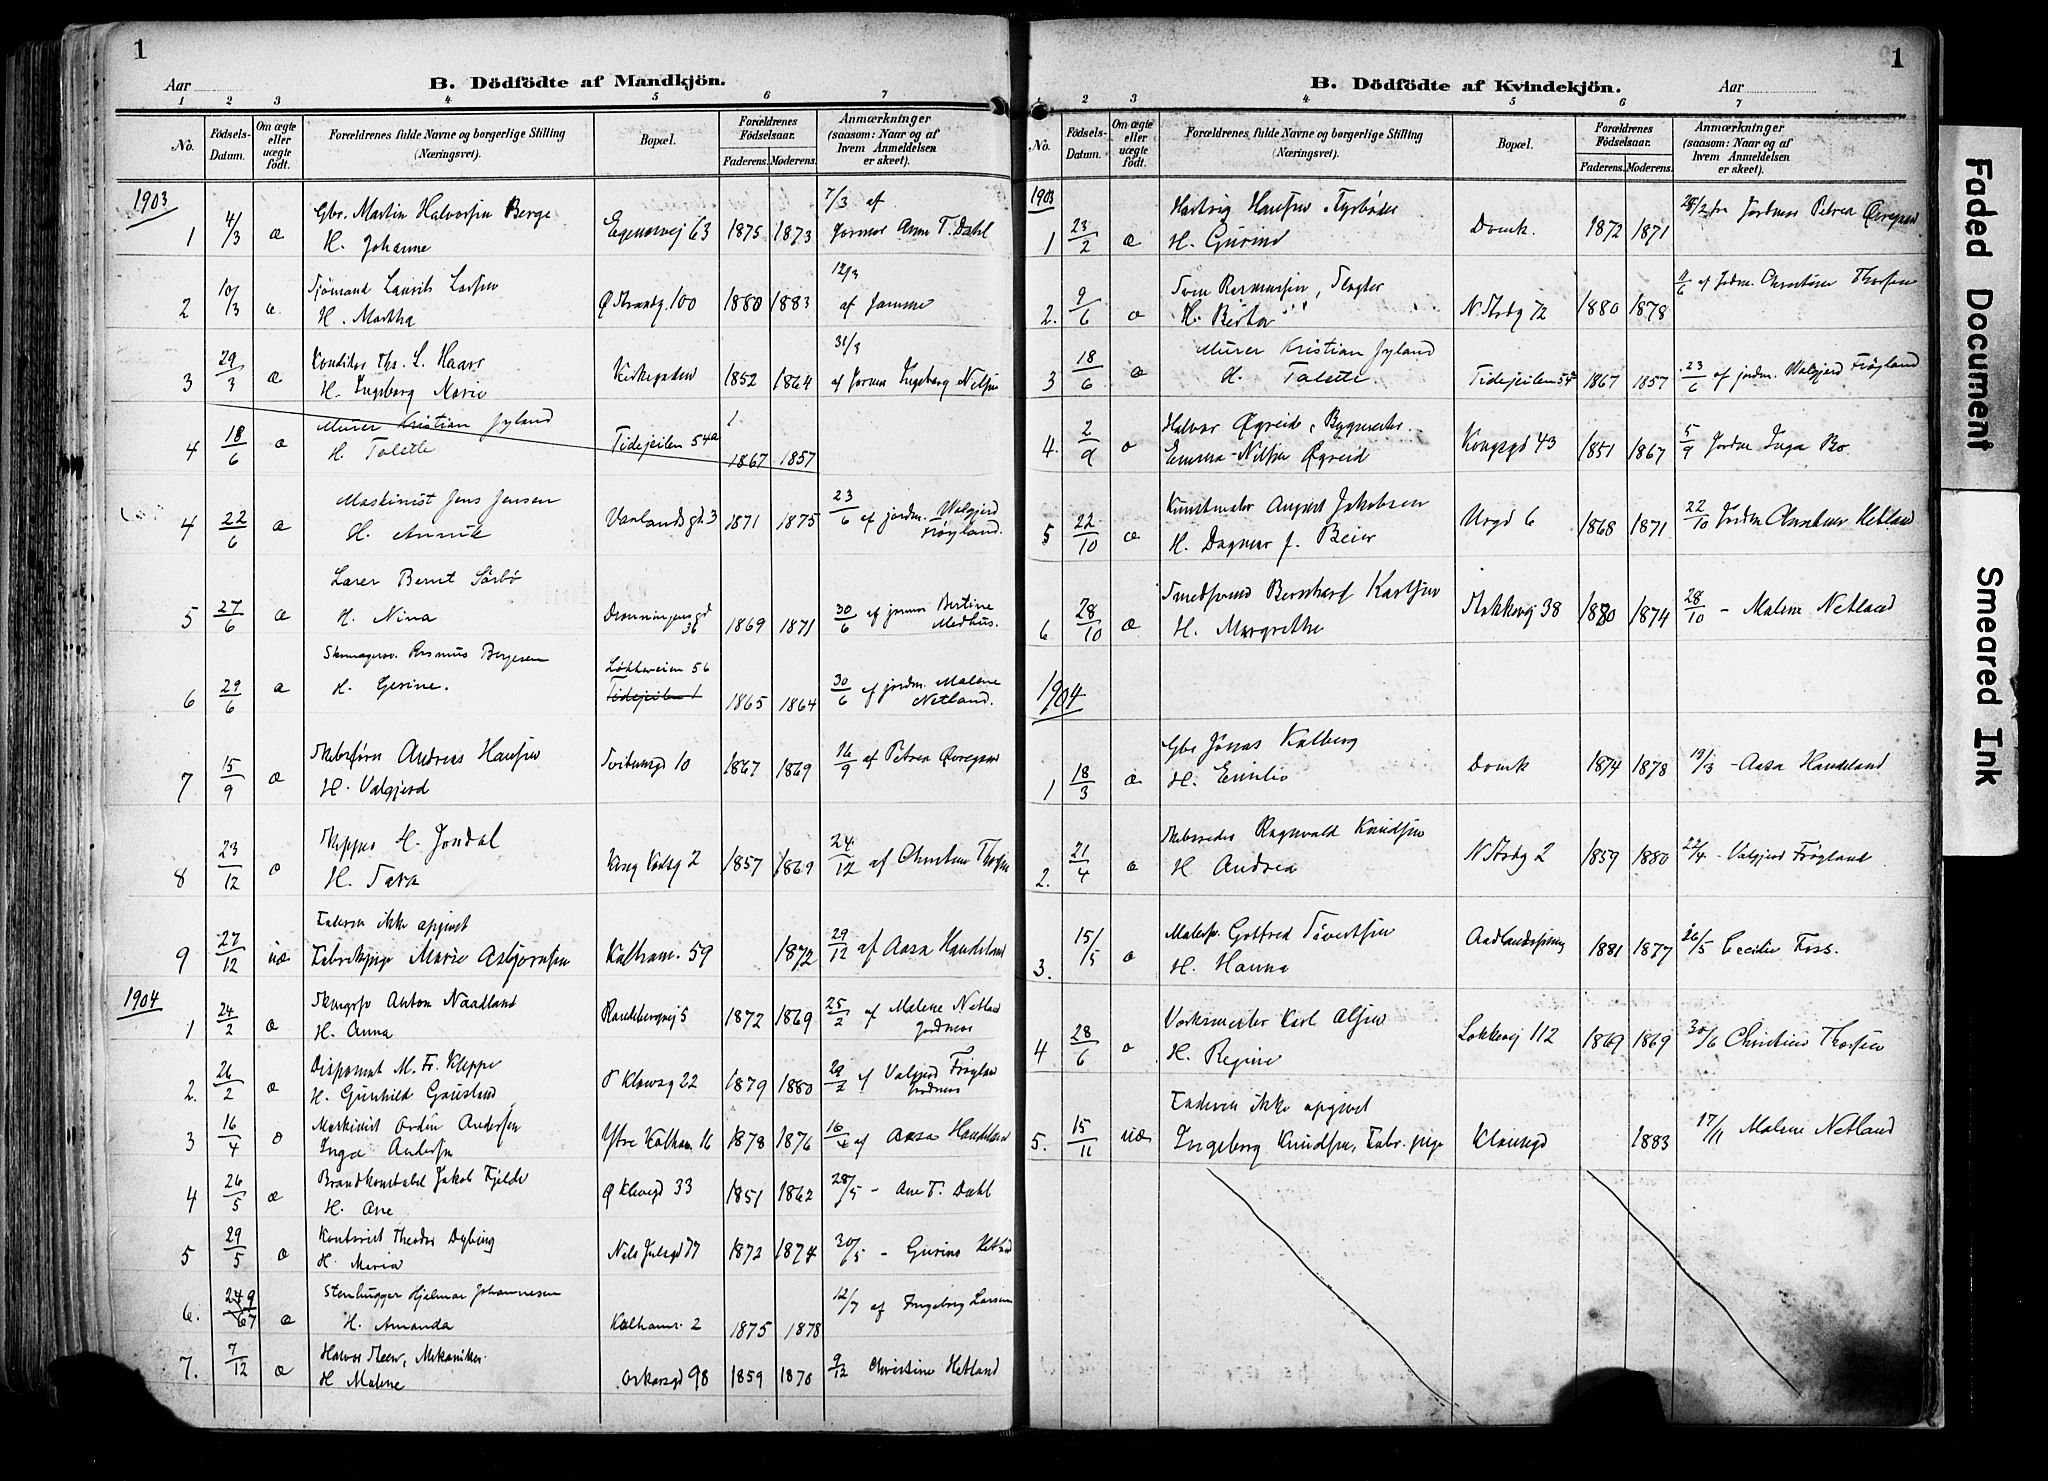 1
Aar
B. Dödfödte af Mandkjön.
1 2 3 4 5 6 7
No.
Födsels-Datum.
Om ægte eller uægte födt.
Forældrenes fulde Navne og borgerlige Stilling (Næringsvei).
Bopæl.
Forældrenes Födselsaar.
Faderens. Moderens.
Anmærkninger (saasom: Naar og af hvem Anmeldelsen er skeet).
1903
Gbr. Martin Halvorsen Berge 7/3 af
1 4/3 æ H. Johanne Egenesvej 63 1875 1873 Jormor Anne T. Dahl
Sjömand Laurits Larsen 12/3
2 10/3 æ H. Martha Ø Strandg. 100 1880 1883 af samme
Konditor Ths. L. Haavr 31/3
3 29/3 æ H. Ingeborg Marie Kirkegaden 1852 1864 af Jormor Ingeborg Nilsen
Murer Kristian Jyland
4 18/6 æ H. Talette Tidejeilen 54a 1867 1857
Maskinist Jens Jensen
4 22/6 æ H. Annik Varlandsgd. 3 1871 1875 23/6 af jordm. Walgjerd Frøyland.
Lærer Bernt Sörbö
5 27/6 æ H. Nina Dronningensgd 36 1869 1871 30/6 af jormor Bertine Medhus.
Skomagersv. Rasmus Bergesen Løkkeveien 56
6 29/6 æ H. Gesine. Tidejeilen 1 1865 1864 30/6 af jordm. Malene Netland.
Skibsfører Andreas Hansen
7 15/9 æ H. Valgjerd 10 1867 1869 16/9 af Petrea Øvregaard
Skipper H. Jondal
8 23/12 æ H. Tara Kong Karlsg 2 1857 1869 24/12 af Christine Thorsen
Faderen ikke opgivet
9 27/12 uæ Fabrikpige Marie Asbjornsen Kalham. 59 1872 29/12 af Aasa Haudeland
1904
Skmgrsv Anton Naadland
1 24/2 æ H. Anna Randebergvej 5 1872 1869 25/2 af Malene Netland Jordmor
Disponent M. Fr. Kleppe
2. 26/2 æ H. Gunhild Gausland 22 1879 1880 29/2 af Valgjerd Frøyland Jordmor
Maskinist Ordin Andersen
3 16/4 æ Inga Andersen Ytre Kalham. 16 1878 1876 16/4 af Aasa Haudeland
Brandkonstabel Jakob Fjelde
4 26/5 æ H. Ane Ø Klevegd 33 1851 1862 28/5 - Ane T. Dahl
Kontorist Theodor Dybing
5 29/5 æ H. Maria Nils Julsgd 77 1872 1874 30/5 - Gurine Hetland
Stenhugger Hjalmar Johannesen
6. æ H. Amanda Kalhams. 2 1875 1878 12/7 af Ingeborg Larsen
Halvor Steen, Mekaniker
7. 7/12 æ H Malene Oskarsgd 98 1859 1870 9/12 Christine Hetland
1
B. Dödfödte af Kvindekjön.
Aar
1 2 3 4 5 6 7
No.
Födsels-Datum.
Om ægte eller uægte födt.
Forældrenes fulde Navne og borgerlige Stilling (Næringsvei).
Bopæl.
Forældrenes Födselsaar.
Faderens. Moderens.
Anmærkninger (saasom: Naar og af hvem Anmeldelsen er skeet).
1903
Hartvig Hansen, Fyrböder
1 23/2 æ H. Gurine Domk. 1872 1871 28/2 fra Jordmor Petrea Øvregaard
Sven Rasmussen, Slagter
2. 9/6 æ H. Berta N. Strdg 72 1880 1878 11/6 af Jordm. Christine Thorsen
Murer Kristian Jyland
3 18/6 æ H. Talette. Tidejeilen 54a 1867 1857 23/6 af jordm. Walgjerd Frøyland
Halvor Øgreid, Bygmester.
4. 2/9 æ Emma Nilsen Øgreid Kongsgd 43 1851 1867 5/9 Jordm Inga Bo.
Kunstmaler August Jakobsen
5 22/10 æ H. Dagmar J. Beier Urgd 6 1868 1871 22/10 Jordm Christine Hetland
Smedsvend Bernhard Karlsen
6 28/10 æ H. Margrethe Stokkevej 38 1880 1874 28/10 - Malene Netland
1904
Gbr Jonas Kalberg
1 18/3 æ H. Emilie Domk 1874 1878 19/3 - Aasa Haudeland
Skibsreder Ragnvald Knudsen
2. 21/4 æ H Andrea N Strdg 2 1859 1880 22/4 - Valgjerd Frøyland
Malersv Gotfred Sivertsen
3. 15/5 æ H. Hanna 1881 1877 26/5 Cecilie Foss.
Værkmester Karl Olsen
4 28/6 æ H. Regine Løkkevej 112 1869 1869 30/6 Christine Thorsen
Faderen ikke opgivet
5. 15/11 uæ Ingeborg Knudsen, Fabr. pige Klausegd 1883 17/11 Malene Netland
Faded Document
Smeared Ink